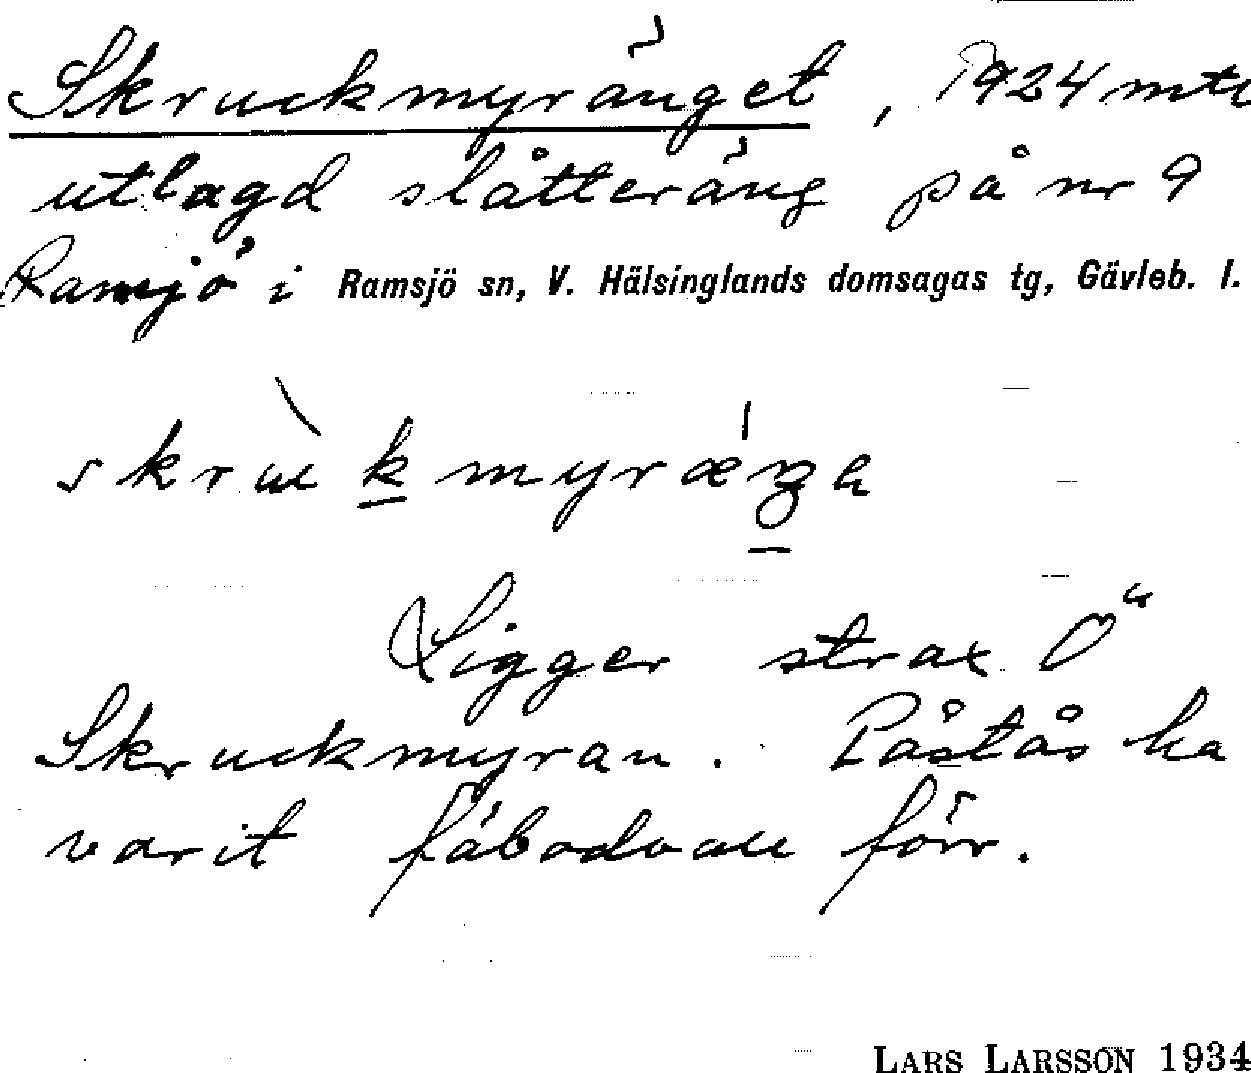 Skruckmyränget, 1924 mte
utlagd slåtteräng på nr 9
Ramsjö i Ramsjö sn, V. Hälsinglands domsagas tg, Gävleb. l.
skrùkmyrǽŋa
Ligger strax Ö
Skruckmyran. Påstås ha
varit fäbodvall förr.
LARS LARSSON 1934